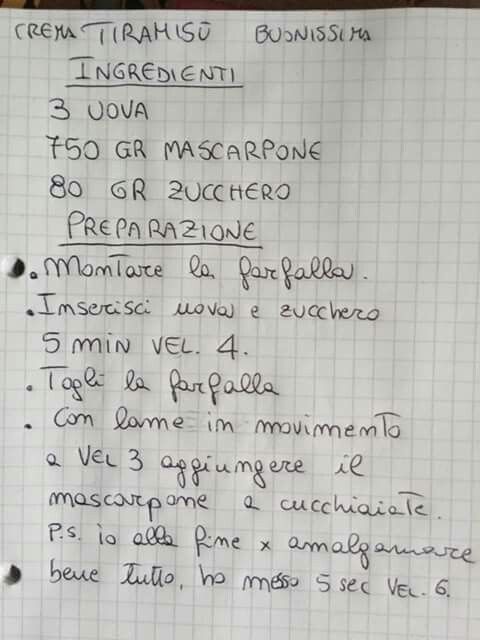 CREMA TIRAMISÙ BUONISSIMA
INGREDIENTI
3 UOVA
750 GR MASCARPONE
80 GR ZUCCHERO
PREPARAZIONE
• Montare la farfalla.
• Inserisci uova e zucchero
5 MIN VEL. 4.
• Togli la farfalla
• Con lame in movimento
a VEL 3 aggiungere il
mascarpone a cucchiaiate.
P.S. io alla fine x amalgamare
bene tutto, ho messo 5 sec VEL. 6.